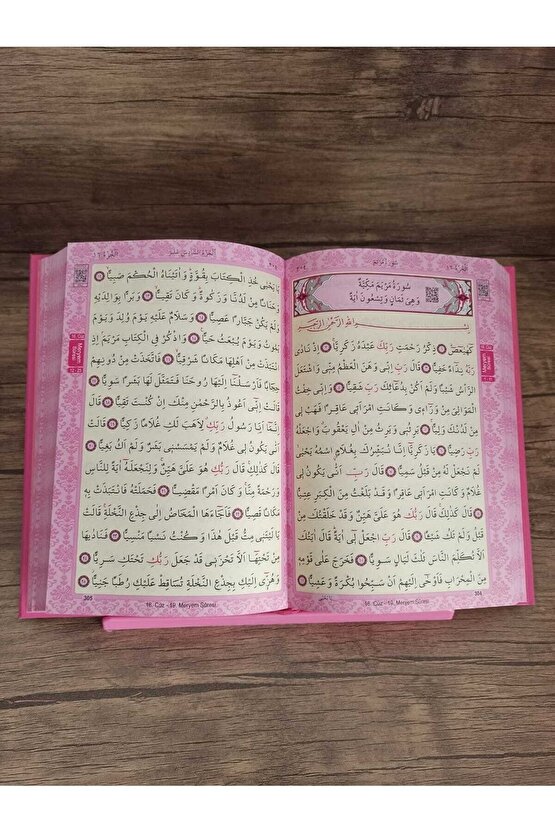 سُورَةُ مَرْيَمَ
اَلْجُزْءُ ١٦
٣٠٤
سُورَةُ مَرْيَمَ مَكِّيَّةٌ
وَهِىَ ثَمَانٍ وَتِسْعُونَ اٰيَةً
بِسْمِ اللّٰهِ الرَّحْمٰنِ الرَّحٖيمِ
كٓهٰيٰعٓصٓ ۝ ذِكْرُ رَحْمَتِ رَبِّكَ عَبْدَهُ زَكَرِيَّا ۝ اِذْ نَادٰى
رَبَّهُ نِدَٓاءً خَفِيًّا ۝ قَالَ رَبِّ اِنّٖى وَهَنَ الْعَظْمُ مِنّٖى وَاشْتَعَلَ
الرَّأْسُ شَيْبًا وَلَمْ اَكُنْ بِدُعَٓائِكَ رَبِّ شَقِيًّا ۝ وَاِنّٖى خِفْتُ
الْمَوَالِىَ مِنْ وَرَٓاءٖى وَكَانَتِ امْرَاَتٖى عَاقِرًا فَهَبْ لٖى
مِنْ لَدُنْكَ وَلِيًّا ۝ يَرِثُنٖى وَيَرِثُ مِنْ اٰلِ يَعْقُوبَ وَاجْعَلْهُ
رَبِّ رَضِيًّا ۝ يَا زَكَرِيَّٓا اِنَّا نُبَشِّرُكَ بِغُلَامٍ اسْمُهُ يَحْيٰى
لَمْ نَجْعَلْ لَهُ مِنْ قَبْلُ سَمِيًّا ۝ قَالَ رَبِّ اَنّٰى يَكُونُ لٖى
غُلَامٌ وَكَانَتِ امْرَاَتٖى عَاقِرًا وَقَدْ بَلَغْتُ مِنَ الْكِبَرِ عِتِيًّا
۝ قَالَ كَذٰلِكَ قَالَ رَبُّكَ هُوَ عَلَىَّ هَيِّنٌ وَقَدْ خَلَقْتُكَ مِنْ
قَبْلُ وَلَمْ تَكُ شَيْـًٔا ۝ قَالَ رَبِّ اجْعَلْ لٖٓى اٰيَةً قَالَ اٰيَتُكَ
اَلَّا تُكَلِّمَ النَّاسَ ثَلٰثَ لَيَالٍ سَوِيًّا ۝ فَخَرَجَ عَلٰى قَوْمِهٖ
مِنَ الْمِحْرَابِ فَاَوْحٰٓى اِلَيْهِمْ اَنْ سَبِّحُوا بُكْرَةً وَعَشِيًّا ۝
304
16. Cüz - 19. Meryem Sûresi
Meryem
Sûresi
اَلْجُزْءُ السَّادِسَ عَشَرَ
اَلْجُزْءُ ١٦
يَا يَحْيٰى خُذِ الْكِتَابَ بِقُوَّةٍ وَاٰتَيْنَاهُ الْحُكْمَ صَبِيًّا ۝
وَحَنَانًا مِنْ لَدُنَّا وَزَكٰوةً وَكَانَ تَقِيًّا ۝ وَبَرًّا بِوَالِدَيْهِ
وَلَمْ يَكُنْ جَبَّارًا عَصِيًّا ۝ وَسَلَامٌ عَلَيْهِ يَوْمَ وُلِدَ وَيَوْمَ
يَمُوتُ وَيَوْمَ يُبْعَثُ حَيًّا ۝ وَاذْكُرْ فِى الْكِتَابِ مَرْيَمَ اِذِ
انْتَبَذَتْ مِنْ اَهْلِهَا مَكَانًا شَرْقِيًّا ۝ فَاتَّخَذَتْ مِنْ دُونِهِمْ
حِجَابًا فَاَرْسَلْنَٓا اِلَيْهَا رُوحَنَا فَتَمَثَّلَ لَهَا بَشَرًا سَوِيًّا ۝
قَالَتْ اِنّٖٓى اَعُوذُ بِالرَّحْمٰنِ مِنْكَ اِنْ كُنْتَ تَقِيًّا ۝ قَالَ
اِنَّمَٓا اَنَا رَسُولُ رَبِّكِ لِاَهَبَ لَكِ غُلَامًا زَكِيًّا ۝ قَالَتْ
اَنّٰى يَكُونُ لٖى غُلَامٌ وَلَمْ يَمْسَسْنٖى بَشَرٌ وَلَمْ اَكُ بَغِيًّا ۝
قَالَ كَذٰلِكِ قَالَ رَبُّكِ هُوَ عَلَىَّ هَيِّنٌ وَلِنَجْعَلَهُٓ اٰيَةً لِلنَّاسِ
وَرَحْمَةً مِنَّا وَكَانَ اَمْرًا مَقْضِيًّا ۝ فَحَمَلَتْهُ فَانْتَبَذَتْ بِهٖ
مَكَانًا قَصِيًّا ۝ فَاَجَٓاءَهَا الْمَخَاضُ اِلٰى جِذْعِ النَّخْلَةِ قَالَتْ
يَا لَيْتَنٖى مِتُّ قَبْلَ هٰذَا وَكُنْتُ نَسْيًا مَنْسِيًّا ۝ فَنَادٰيهَا
مِنْ تَحْتِهَٓا اَلَّا تَحْزَنٖى قَدْ جَعَلَ رَبُّكِ تَحْتَكِ سَرِيًّا ۝
وَهُزّٖٓى اِلَيْكِ بِجِذْعِ النَّخْلَةِ تُسَاقِطْ عَلَيْكِ رُطَبًا جَنِيًّا ۝
305
16. Cüz - 19. Meryem Sûresi
Meryem
Sûresi